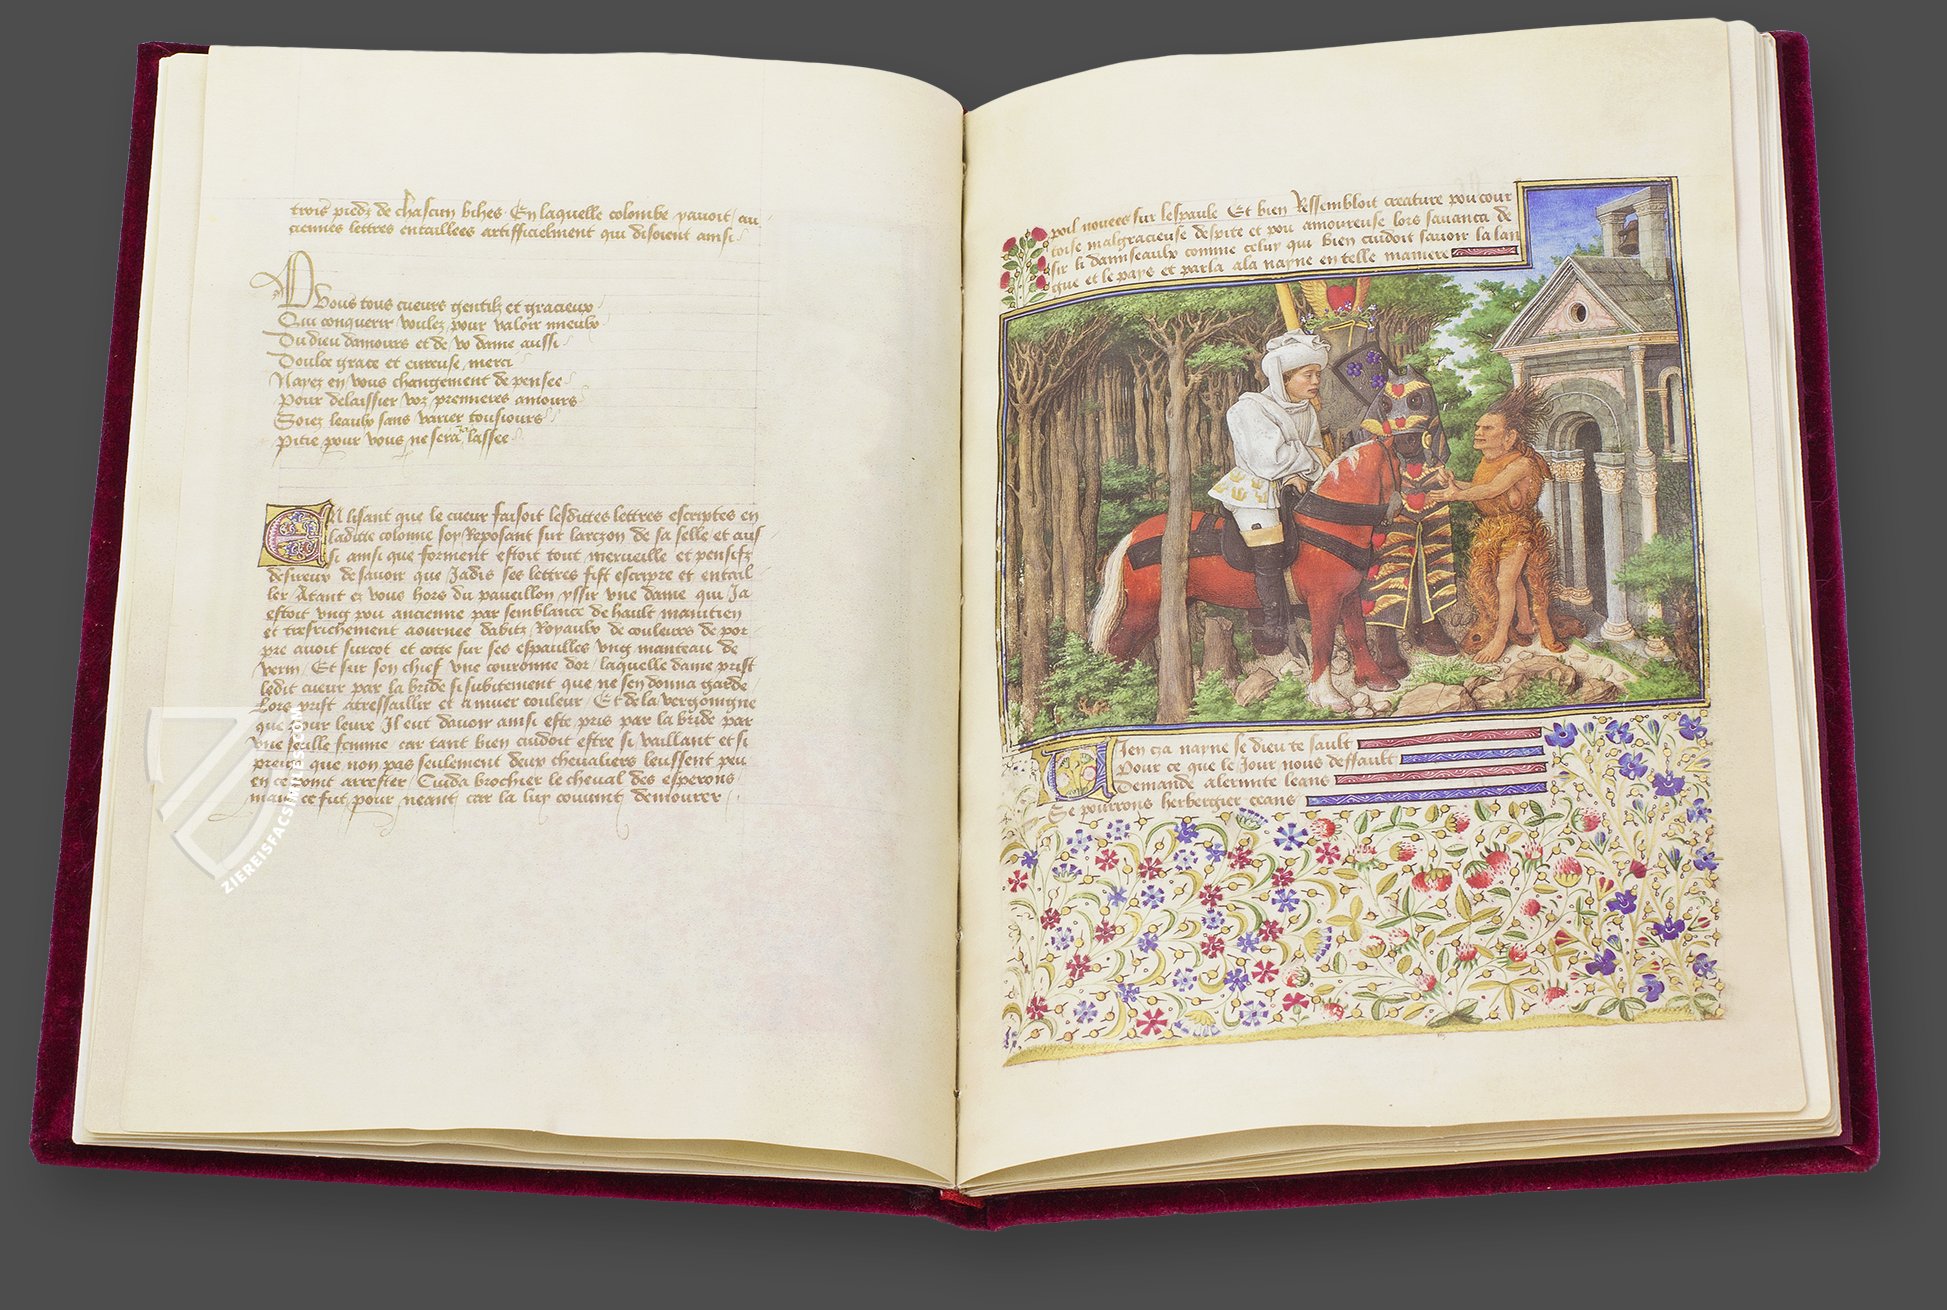 trois piedz de chascun liches En laquelle colombe yavoit / an
ciennes lettres entaillees artifficielment qui disoient ainsi
A Vous tous cueurs gentilz et gracieux
Qui conquerir voulez pour valoir mieulx
Du dieu damours et de vo dame aussi
Doulce grace et eureuse merci
Nayez en vous changement de pensee
Pour delaissier voz premieres amours
Soiez leaulx sans varier tousiours
Pitie pour vous ne sera ia lassee
En lisant que le cueur faisoit lesdittes lettres escriptes en
ladicte colonne soy Reposant sur larczon de sa selle et aus
si ainsi que forment estoit tout merveille et pensifz
desireux de savoir que Jadis ses lettres fist escripre et entail
ler Atant es vous hors du paveillon yssir une dame qui Ja
estoit ung pou ancienne par semblance de hault maintien
et tresrichement aournee dabitz Royaulx de couleurs de por
pre avoit surcot et cotte sur ses espaulles ung manteau de
Et sur son chief une couronne dor / laquelle dame prist
ledit cueur par la bride si subitement que ne sen donna garde
Lors prist atressaillir et a muer couleur / Et de la vergoingne
que pour leure Il eut davoir ainsi este pris par la bride par
une seulle femme car tant bien cuidoit estre si vaillant et si
preux que non pas seulement deux chevaliers leussent peu
en ce point arrester / Cuida brochier le cheval des esperons
mais ce fut pour neant car la luy convint demourer
ZIEREISFACSIMILES.COM
poil nouees sur lespaule Et bien Ressembloit creature pou cour
toise malgracieuse despite et pou amoureuse lors savanca de
sir li damiseaulx comme celuy qui bien cuidoit savoir la lan
gue et le pays et parla ala nayne en telle maniere
Vien cza nayne se dieu te sault
Pour ce que le Jour nous deffault
Demande alermite leans
Se pourrons herbergier ceans